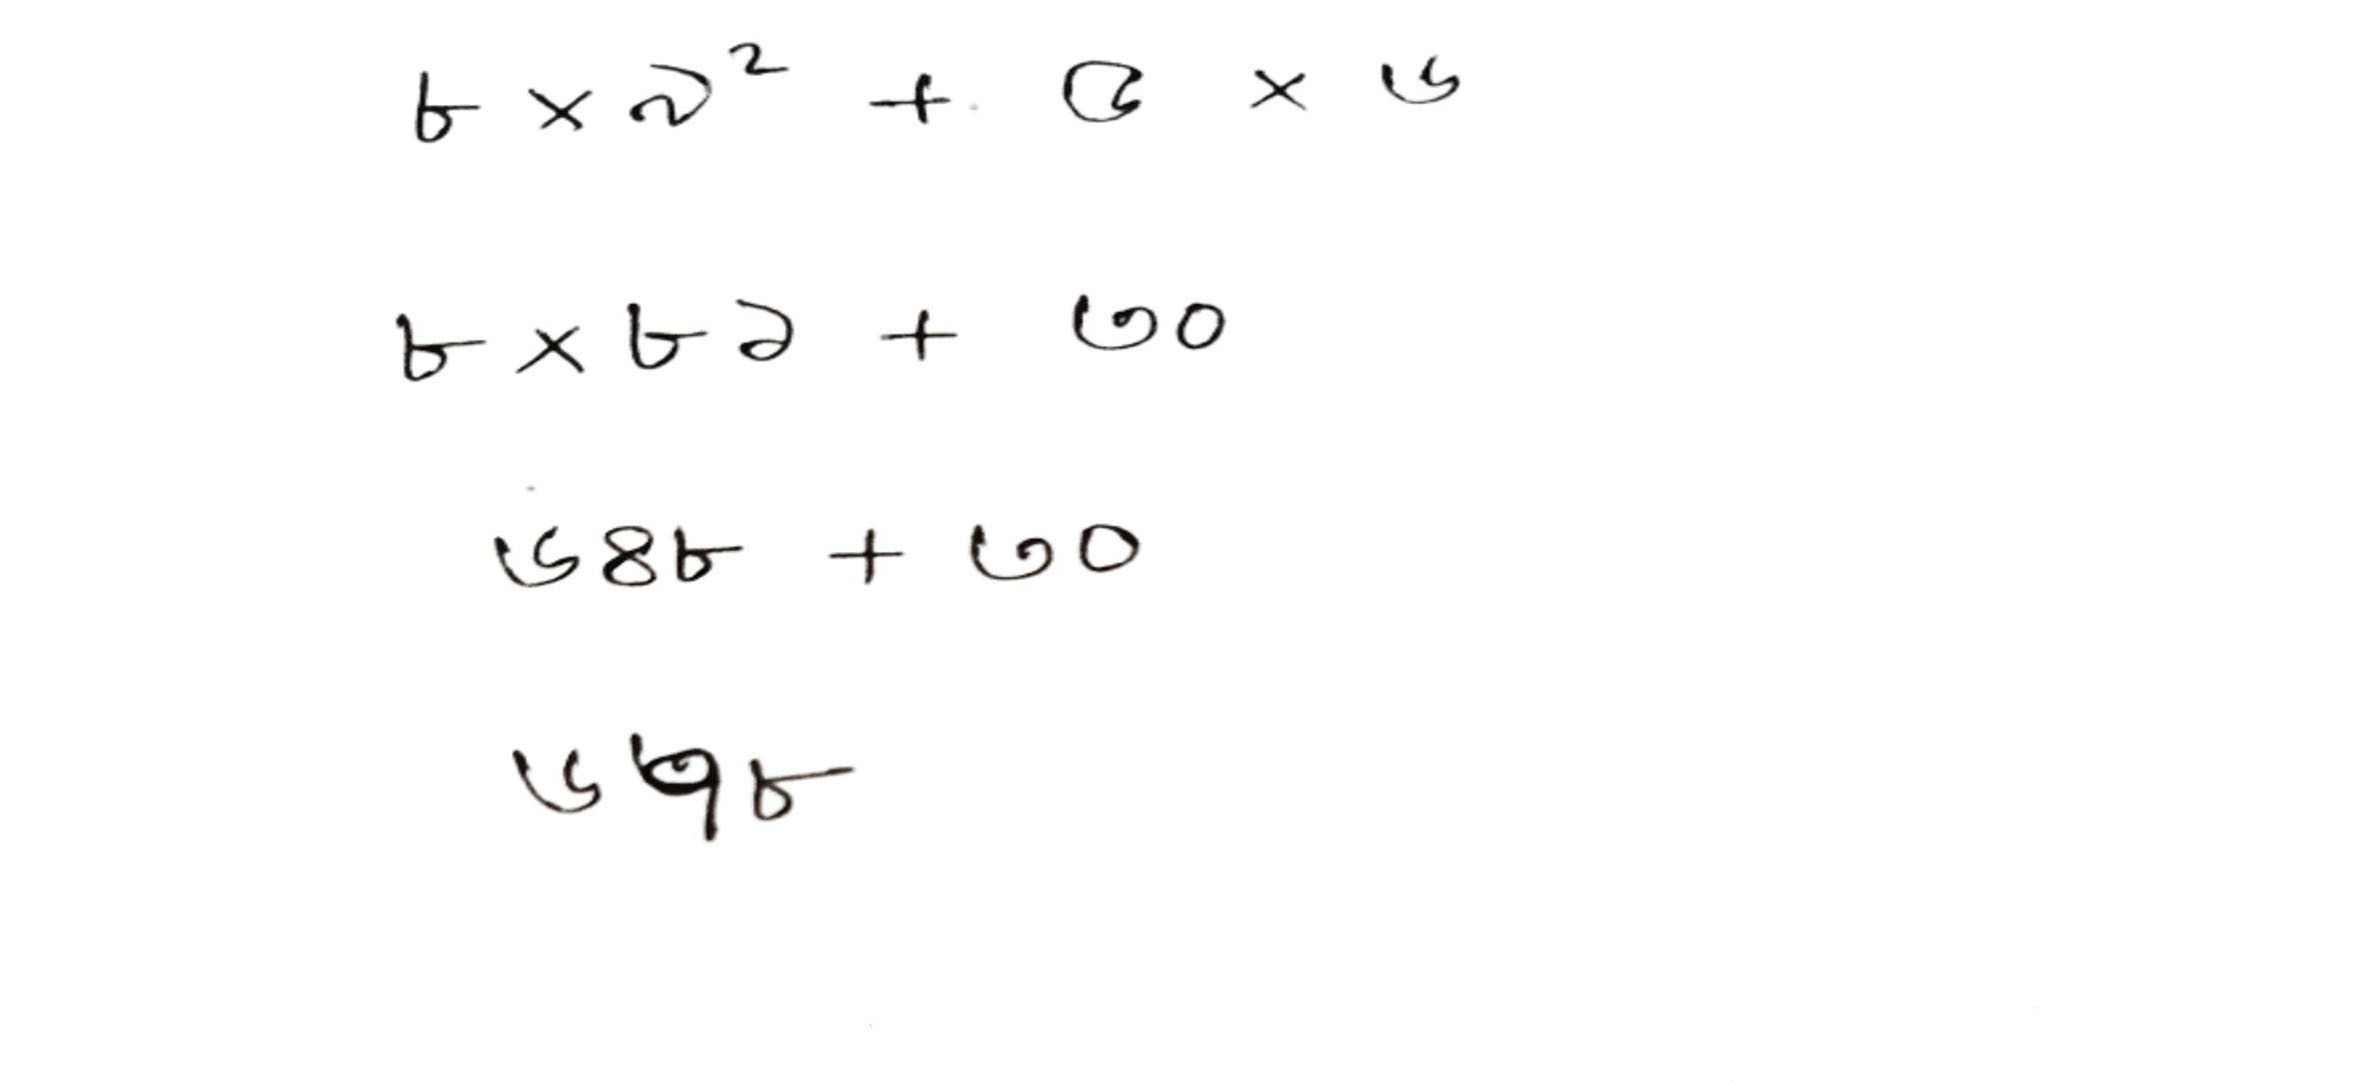 ৮ × ৯² + ৫ × ৬
৮ × ৮১ + ৩০
৬৪৮ + ৩০
৬৭৮